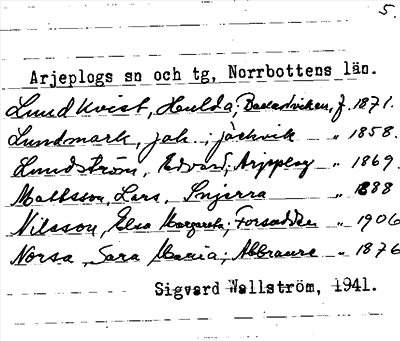 5.
Arjeplogs sn och tg, Norrbottens län.
Lundkvist, Hulda, f. 1871.
Lundmark, Joh.; Jäckvik " 1858.
Lundström, Edvard, Arjeplog " 1869.
Mattsson, Lars, " 1888
Nilsson, Elsa Margareta; " 1906
Norsa, Sara Maria; " 1876
Sigvard Wallström, 1941.